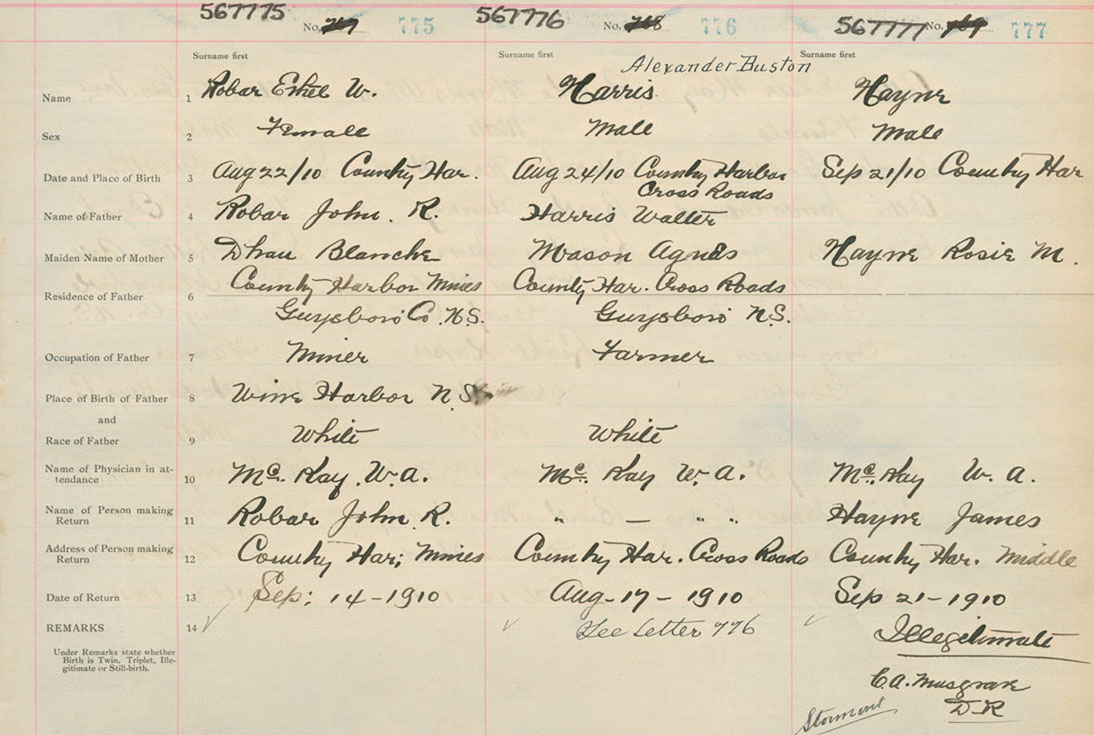 567775 No. 769 775 567776 No. 768 776 567777 No. 769 777
Surname first Surname first Alexander Buston Surname first
Name 1 Robar Ethel W. Harris Hayne
Sex 2 Female Male Male
Date and Place of Birth 3 Aug 22/10 Country Har. Aug 24/10 Country Harbor Sep 21/10 Country Har
Cross Roads
Name of Father 4 Robar John. R. Harris Walter
Maiden Name of Mother 5 Blanche Mason Agnes Hayne Rosie M.
Residence of Father 6 Country Harbor Mines Country Har. Cross Roads
Guysboro Co. N.S. Guysboro N.S.
Occupation of Father 7 Miner Farmer
Place of Birth of Father 8 Wine Harbor N.S.
and
Race of Father 9 White White
Name of Physician in at-
tendance 10 McKay. W.A. McKay W.A. McKay W.A.
Name of Person making
Return 11 Robar John R. " — " " Hayne James
Address of Person making
Return 12 Country Har; Mines Country Har. Cross Roads Country Har. Middle
Date of Return 13 Sep: 14-1910 Aug-17-1910 Sep 21-1910
REMARKS 14 See Letter 776 Illegitimate
Under Remarks state whether
Birth is Twin. Triplet, Ille-
gitimate or Still-birth.
C.A. Musgrave
D.R
Stormont